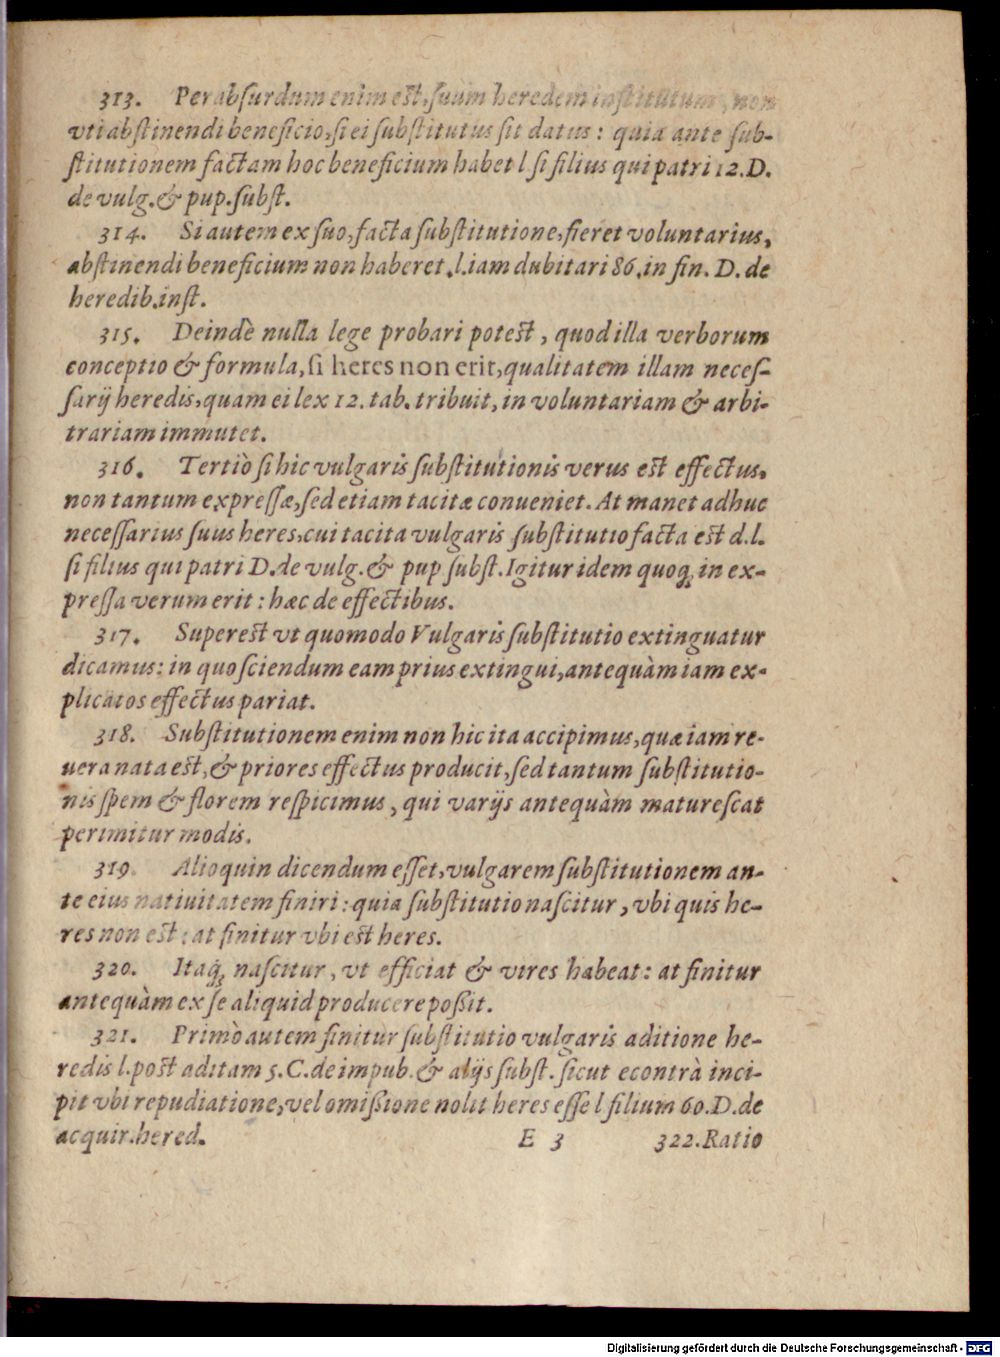 313. Per absurdum enim est, suum heredem institutum, non
vti abstinendi beneficio, si ei substitutus sit datus: quia ante sub-
stitutionem factam hoc beneficium habet l si filius qui patri 12. D.
de vulg. & pup. subst.
314. Si autem ex suo, facta substitutione, fieret voluntarius,
abstinendi beneficium non haberet. l. iam dubitari 86. in fin. D. de
heredib. inst.
315. Deindè nulla lege probari potest, quod illa verborum
conceptio & formula, si heres non erit, qualitatem illam neces-
sarij heredis, quam ei lex 12. tab. tribuit, in voluntariam & arbi-
trariam immutet.
316. Tertiò si hic vulgaris substitutionis verus est effectus,
non tantum expressæ, sed etiam tacitæ conueniet. At manet adhuc
necessarius suus heres, cui tacita vulgaris substitutio facta est d. l.
si filius qui patri D. de vulg. & pup subst. Igitur idem quoq; in ex-
pressa verum erit: hæc de effectibus.
317. Superest vt quomodo Vulgaris substitutio extinguatur
dicamus: in quo sciendum eam prius extingui, antequàm iam ex-
plicatos effectus pariat.
318. Substitutionem enim non hic ita accipimus, quæ iam re-
uera nata est, & priores effectus producit, sed tantum substitutio-
nis spem & florem respicimus, qui varijs antequàm maturescat
perimitur modis.
319. Alioquin dicendum esset, vulgarem substitutionem an-
te eius natiuitatem finiri: quia substitutio nascitur, vbi quis he-
res non est: at finitur vbi est heres.
320. Itaq; nascitur, vt efficiat & vires habeat: at finitur
antequàm ex se aliquid producere poßit.
321. Primò autem finitur substitutio vulgaris aditione he-
redis l. post aditam 5. C. de impub. & alijs subst. sicut econtrà inci-
pit vbi repudiatione, vel omißione nolit heres esse l filium 60. D. de
acquir. hered.
E 3 322. Ratio
Digitalisierung gefördert durch die Deutsche Forschungsgemeinschaft - DFG